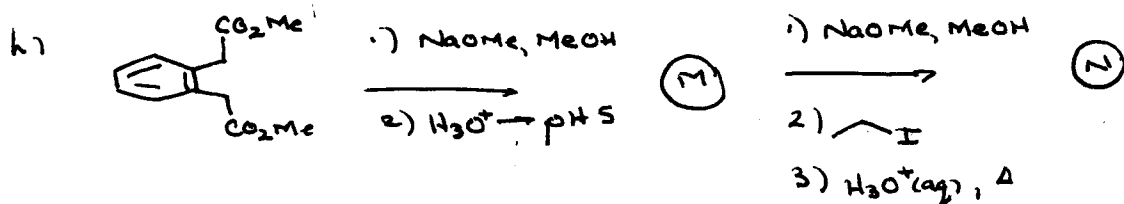 h)
CO₂Me
CO₂Me
1) NaOMe, MeOH
2) H₃O⁺ → pH 5
M
1) NaOMe, MeOH
2) I
3) H₃O⁺(aq), Δ
N